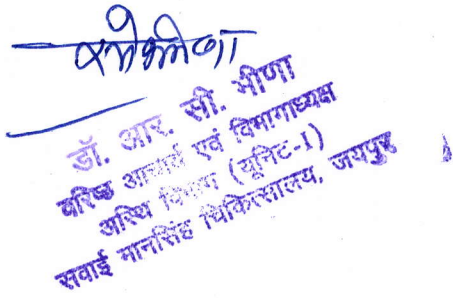 डॉ. आर. सी. मीणा
वरिष्ठ आचार्य एवं विभागाध्यक्ष
अस्थि विभाग (यूनिट-I)
सवाई मानसिंह चिकित्सालय, जयपुर